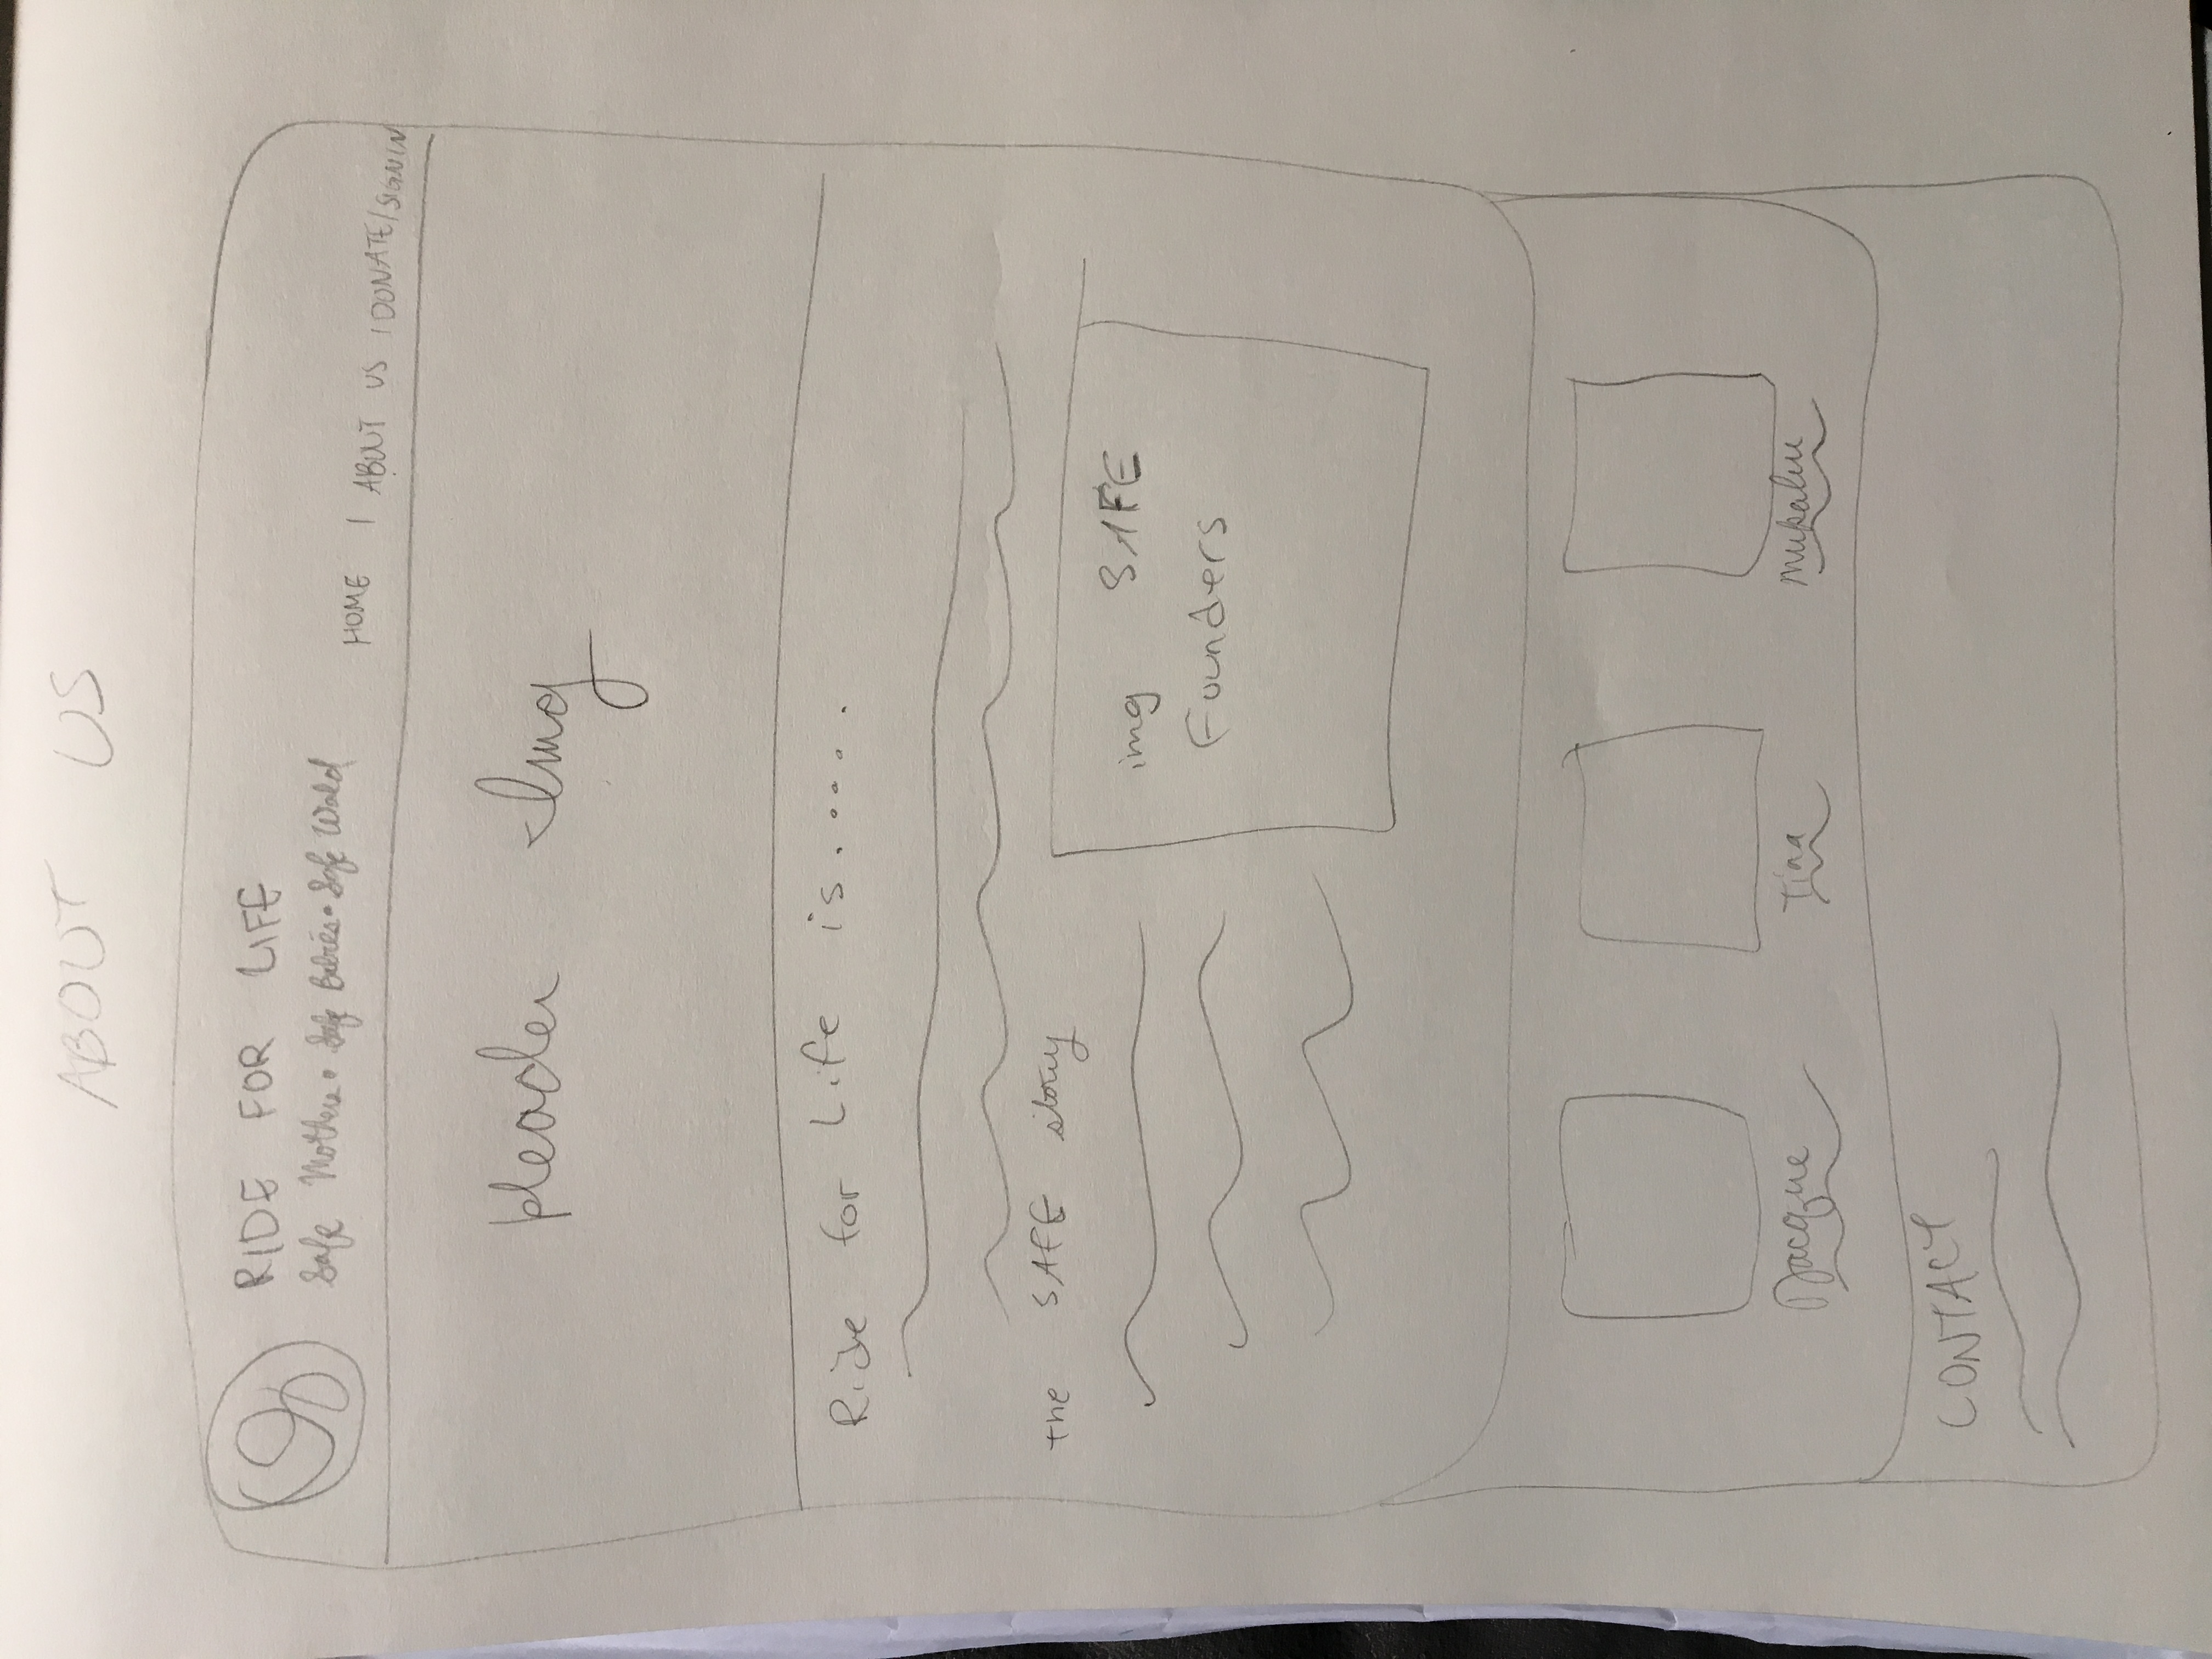 ABOUT US
RIDE FOR LIFE
Safe Mothers • Safe Babies • Safe World
HOME | ABOUT US | DONATE/SIGN IN
Header Img
Ride for Life is......
the SAFE story
img SAFE
Founders
Jacque Tina
CONTACT